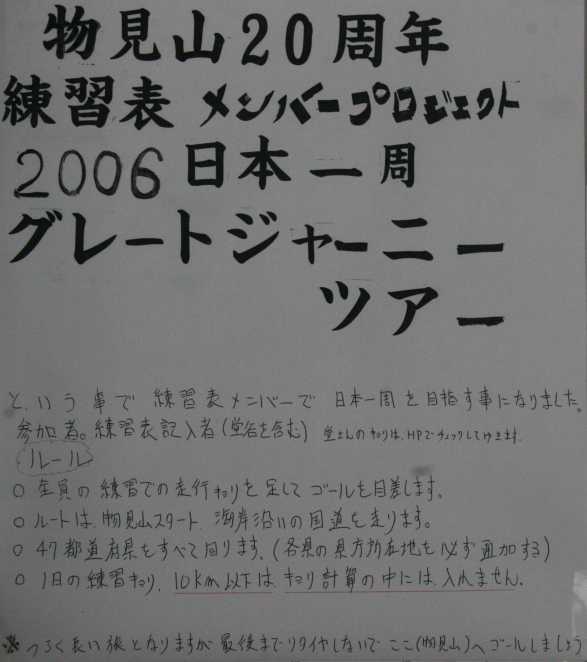 物見山20周年
練習表 メンバープロジェクト
2006日本一周
グレートジャーニー
ツアー
と、いう事で 練習表メンバーで 日本一周を目指す事になりました。
参加者。練習表記入者(堂名を含む) 堂さんのキョリは、HPでチェックしてゆきます。
ルール
○ 全員の練習での走行キョリを足してゴールを目差します。
○ ルートは、物見山スタート 海岸沿いの国道を走ります。
○ 47都道府県をすべて回ります。(各県の県庁所在地を必ず通加する)
○ 1日の練習キョリ、10km以下は キョリ計算の中には、入れません。
※ つらく長い旅となりますが 最後までリタイヤしないで ここ(物見山)へゴールしましょう